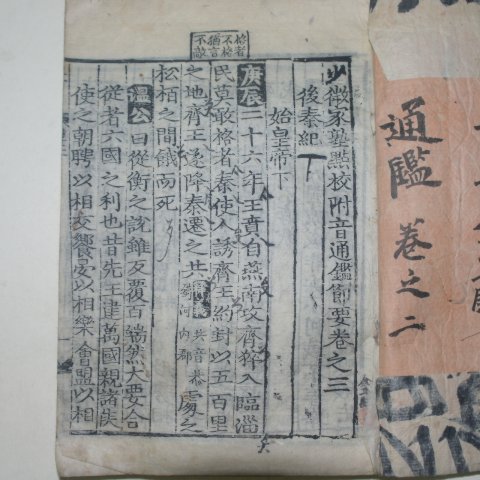 少微家塾點校附音通鑑節要卷之三
後秦紀
始皇帝下
庚辰二十六年王賁自燕南攻齊猝入臨淄
民莫敢格者秦使人誘齊王約封以五百里
之地齊王遂降秦遷之共處之
松栢之間餓而死
溫公曰從衡之說雖反覆百端然大要合
從者六國之利也昔先王建萬國親諸侯
使之朝聘以相交饗宴以相樂會盟以相
格者
不格
猶言
不敵
通鑑 卷之二